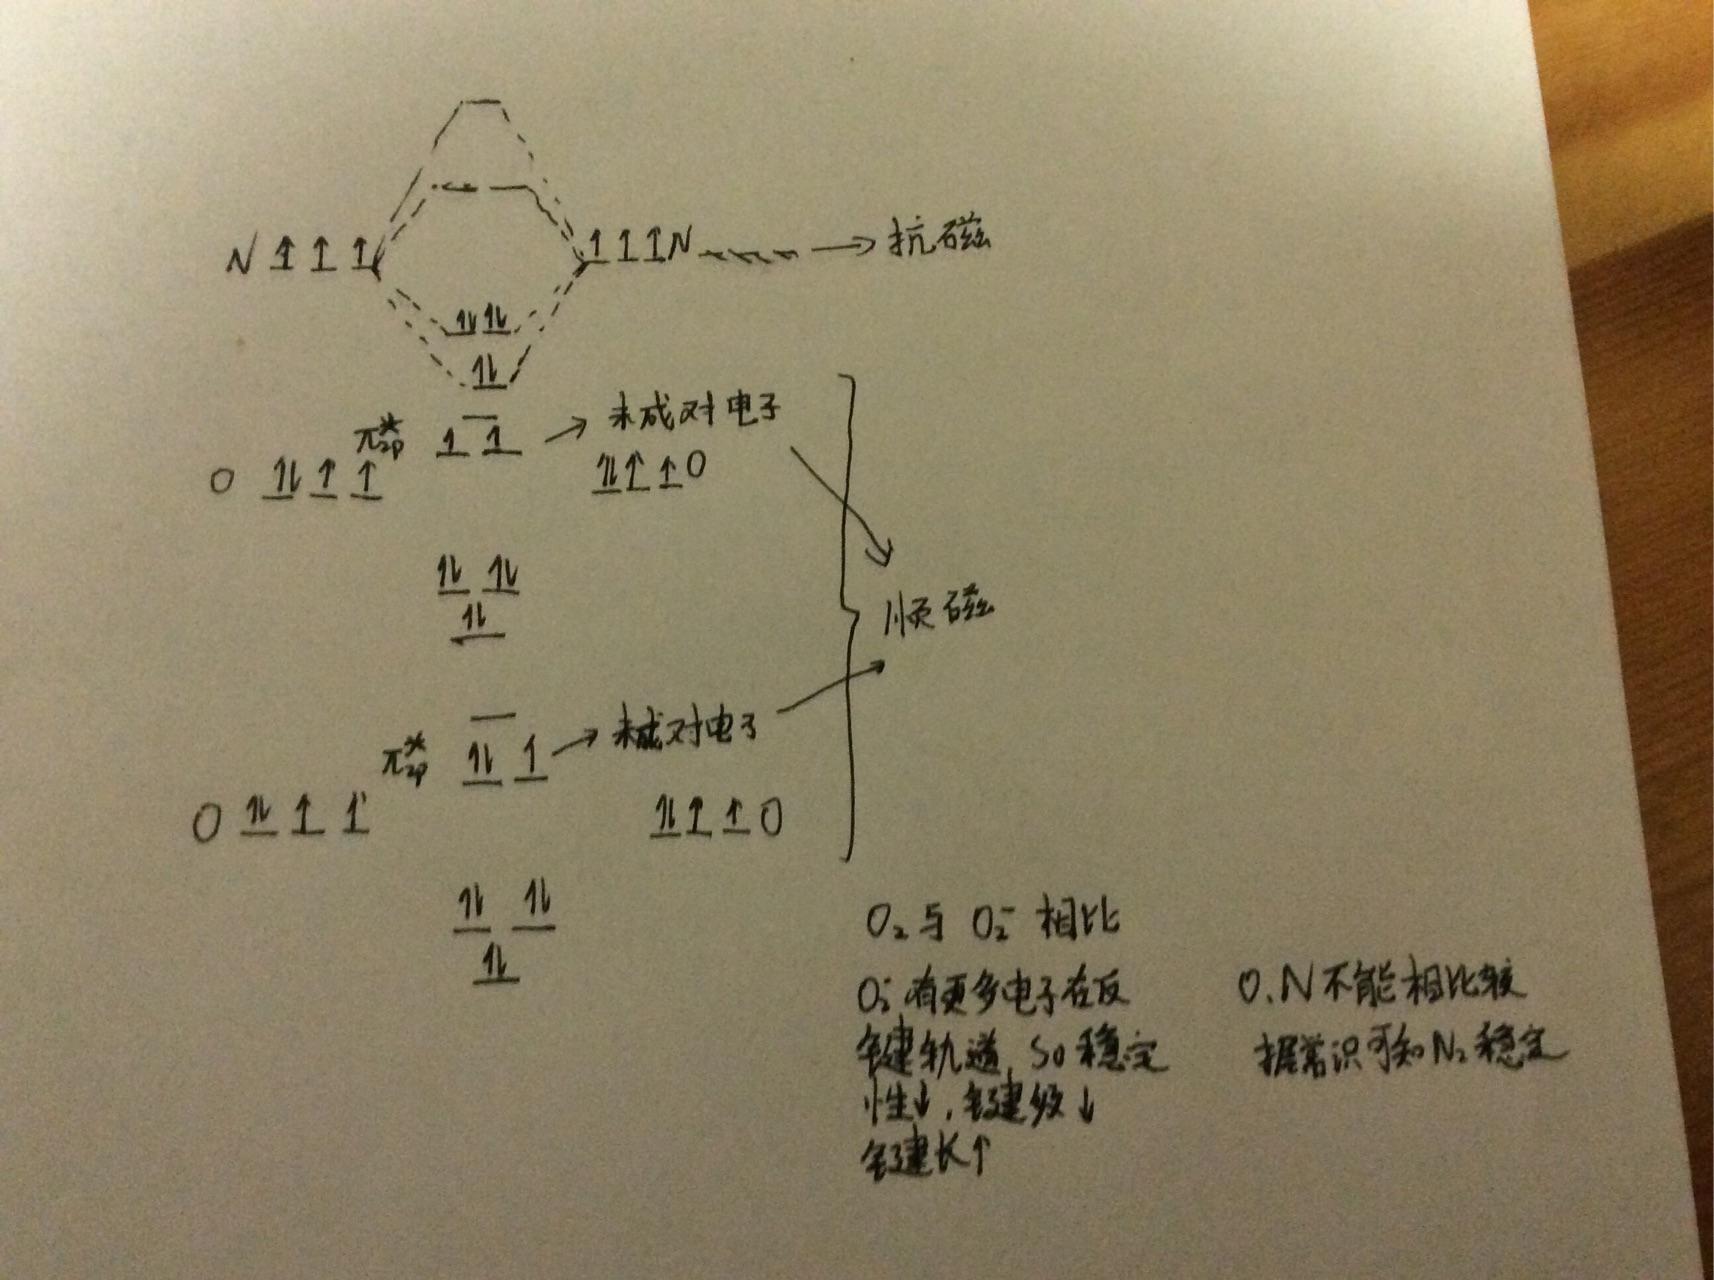 N ↑ ↑ ↑ ↑ ↑ ↑ N → 抗磁
↑↓ ↑↓
↑↓
π*2p ↑ ↑ → 未成对电子
O ↑↓ ↑ ↑ ↑↓ ↑ ↑ O
↑↓ ↑↓
↑↓
顺磁
π*2p ↑↓ ↑ → 未成对电子
O ↑↓ ↑ ↑ ↑↓ ↑ ↑ O
↑↓ ↑↓
↑↓
O₂与 O₂⁻ 相比
O₂⁻有更多电子在反
键轨道, so 稳定
性↓, 键级↓
键长↑
O.N不能相比较
据常识可知N₂稳定